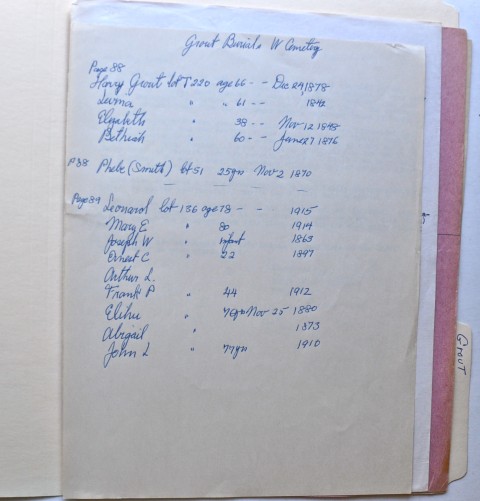 Grout Burials W Cemetey
Page 88
Harry Grout lot T 220 age 66 - - Dec 24 1878
Lurma " " 61 - - 1842
Elizabeth " 38 - - Nov 12 1848
Bethiah " 60 - - June 27 1876
P 88 Phebe (Smith) lot 51 25 yrs Nov 2 1870
Page 89
Leonard lot 136 age 78 - - 1915
Mary E " 80 1914
Joseph W " infant 1863
Ernest C " 22 1897
Arthur L.
Frank P " 44 1912
Elihu " Nov 25 1880
Abigail " 1873
John L " 77 yrs 1910
Grout